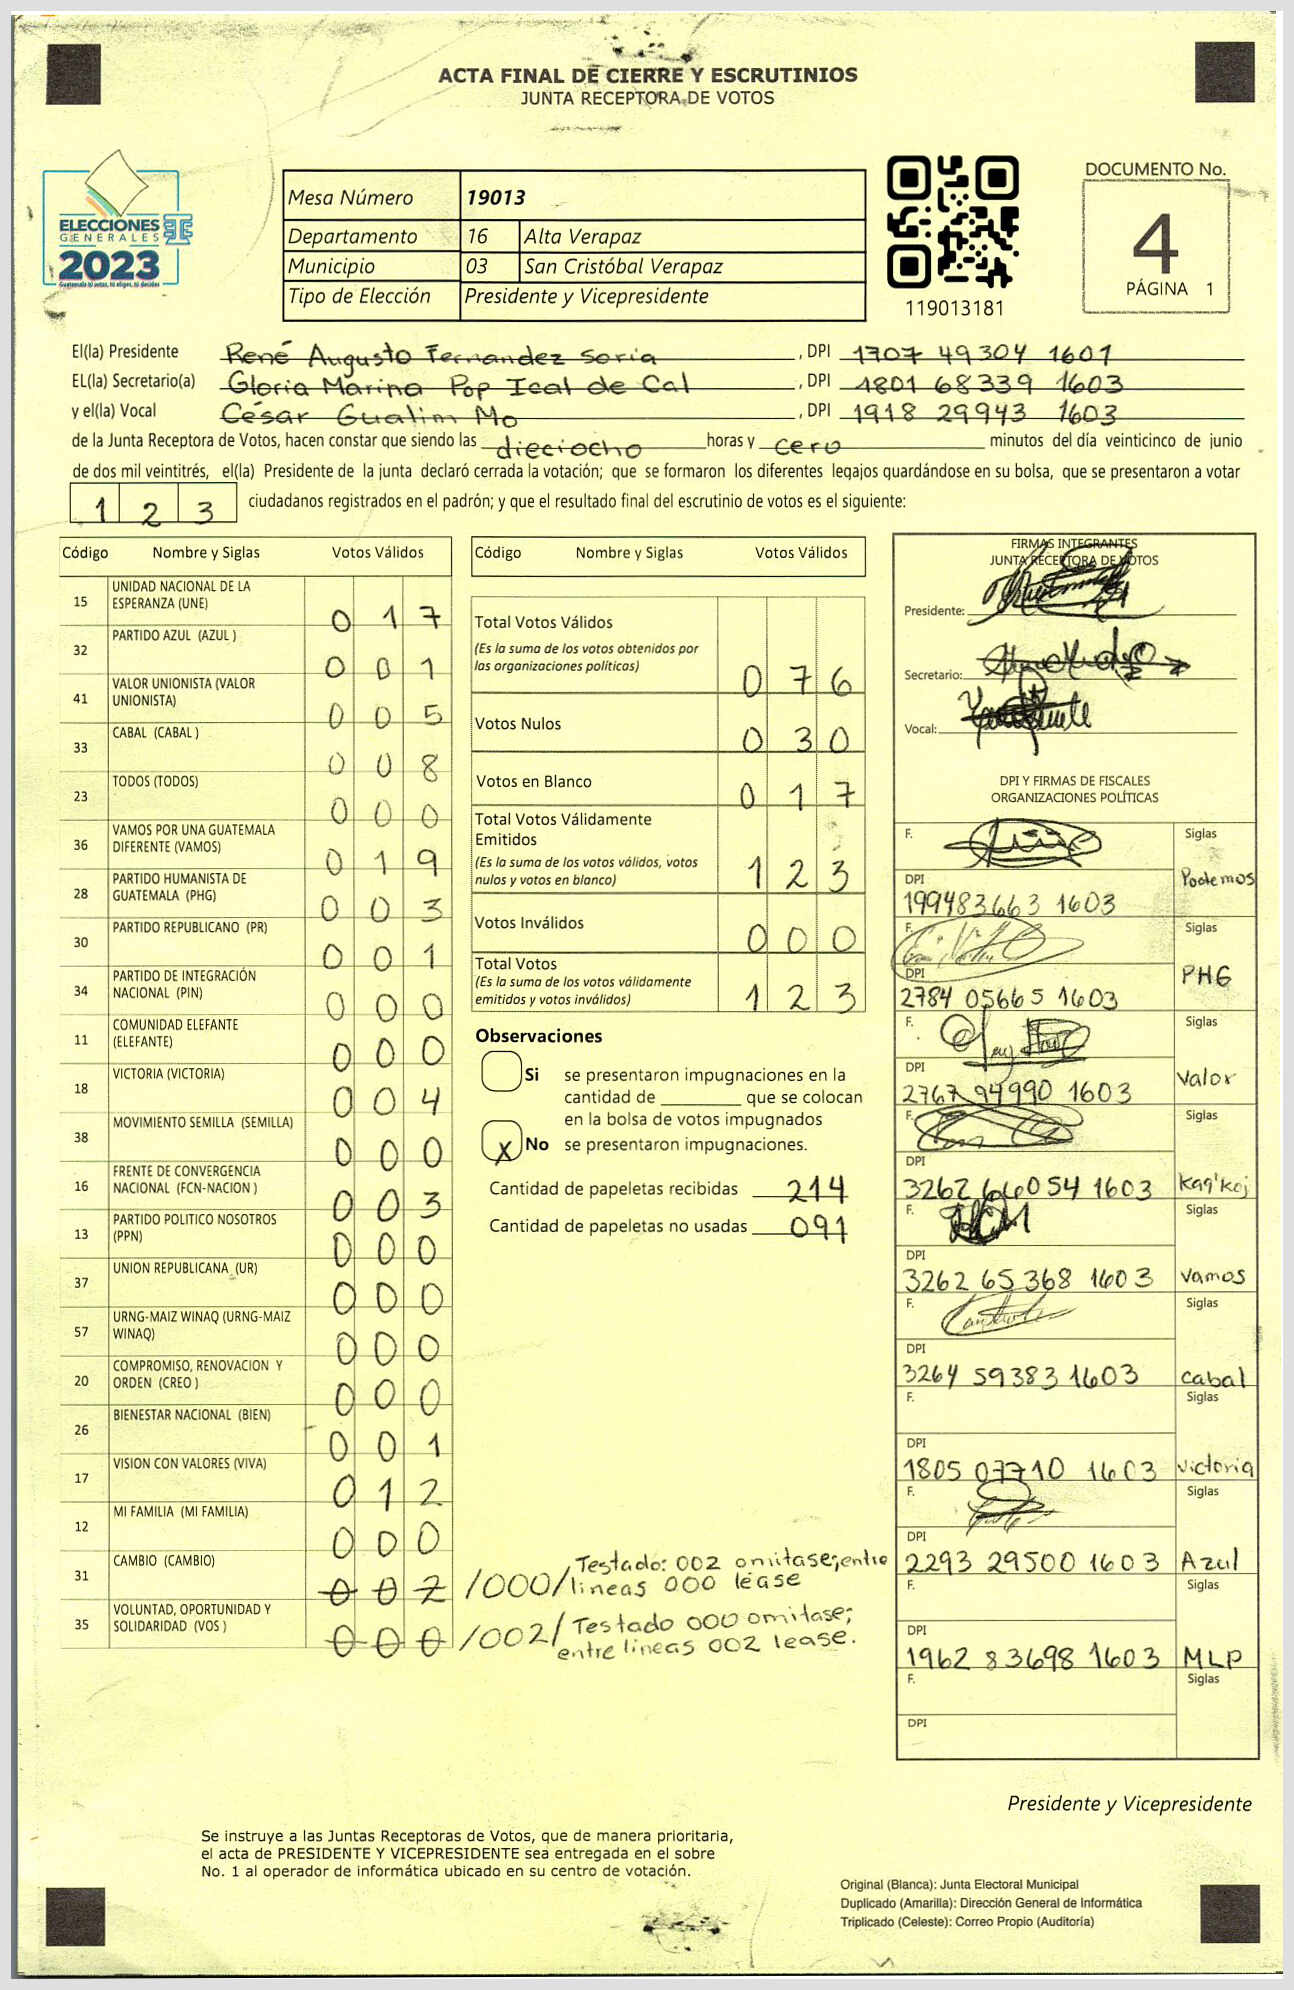 ACTA FINAL DE CIERRE Y ESCRUTINIOS
JUNTA RECEPTORA DE VOTOS
ELECCIONES
GENERALES
2023
Guatemala tú votas, tú eliges, tú decides
Mesa Número 19013
Departamento 16 Alta Verapaz
Municipio 03 San Cristóbal Verapaz
Tipo de Elección Presidente y Vicepresidente
119013181
DOCUMENTO No.
4
PÁGINA 1
El(la) Presidente René Augusto Fernandez Soria, DPI 1707 49304 1601
EL(la) Secretario(a) Gloria Marina Pop Ical de Cal, DPI 1801 68339 1603
y el(la) Vocal César Gualim Mo, DPI 1918 29943 1603
de la Junta Receptora de Votos, hacen constar que siendo las dieciocho horas y cero minutos del día veinticinco de junio
de dos mil veintitrés, el(la) Presidente de la junta declaró cerrada la votación; que se formaron los diferentes legajos guardándose en su bolsa, que se presentaron a votar
1 2 3 ciudadanos registrados en el padrón; y que el resultado final del escrutinio de votos es el siguiente:
Código Nombre y Siglas Votos Válidos
15 UNIDAD NACIONAL DE LA
ESPERANZA (UNE) 0 1 7
32 PARTIDO AZUL (AZUL ) 0 0 1
41 VALOR UNIONISTA (VALOR
UNIONISTA) 0 0 5
33 CABAL (CABAL ) 0 0 8
23 TODOS (TODOS) 0 0 0
36 VAMOS POR UNA GUATEMALA
DIFERENTE (VAMOS) 0 1 9
28 PARTIDO HUMANISTA DE
GUATEMALA (PHG) 0 0 3
30 PARTIDO REPUBLICANO (PR) 0 0 1
34 PARTIDO DE INTEGRACIÓN
NACIONAL (PIN) 0 0 0
11 COMUNIDAD ELEFANTE
(ELEFANTE) 0 0 0
18 VICTORIA (VICTORIA) 0 0 4
38 MOVIMIENTO SEMILLA (SEMILLA) 0 0 0
16 FRENTE DE CONVERGENCIA
NACIONAL (FCN-NACION ) 0 0 3
13 PARTIDO POLITICO NOSOTROS
(PPN) 0 0 0
37 UNION REPUBLICANA (UR) 0 0 0
57 URNG-MAIZ WINAQ (URNG-MAIZ
WINAQ) 0 0 0
20 COMPROMISO, RENOVACION Y
ORDEN (CREO ) 0 0 0
26 BIENESTAR NACIONAL (BIEN) 0 0 1
17 VISION CON VALORES (VIVA) 0 1 2
12 MI FAMILIA (MI FAMILIA) 0 0 0
31 CAMBIO (CAMBIO) 0 0 2 /000/ Testado: 002 omitase; entre
lineas 000 léase
35 VOLUNTAD, OPORTUNIDAD Y
SOLIDARIDAD (VOS ) 0 0 0 /002/ Testado 000 omitase;
entre lineas 002 lease.
Código Nombre y Siglas Votos Válidos
Total Votos Válidos
(Es la suma de los votos obtenidos por
las organizaciones políticas) 0 7 6
Votos Nulos 0 3 0
Votos en Blanco 0 1 7
Total Votos Válidamente
Emitidos
(Es la suma de los votos válidos, votos
nulos y votos en blanco) 1 2 3
Votos Inválidos 0 0 0
Total Votos
(Es la suma de los votos válidamente
emitidos y votos inválidos) 1 2 3
Observaciones
Si se presentaron impugnaciones en la
cantidad de ________ que se colocan
en la bolsa de votos impugnados
X No se presentaron impugnaciones.
Cantidad de papeletas recibidas 214
Cantidad de papeletas no usadas 091
FIRMAS INTEGRANTES
JUNTA RECEPTORA DE VOTOS
Presidente:
Secretario:
Vocal:
DPI Y FIRMAS DE FISCALES
ORGANIZACIONES POLÍTICAS
F. Siglas
DPI Podemos
199483663 1603
F. Siglas
DPI PHG
2784 05665 1603
F. Siglas
DPI Valor
2767 94990 1603
F. Siglas
DPI
3262 66054 1603 Kaq'koj
F. Siglas
DPI
3262 65368 1603 Vamos
F. Siglas
DPI
3264 59383 1603 Cabal
F. Siglas
DPI
1805 07710 1603 Victoria
F. Siglas
DPI
2293 29500 1603 Azul
F. Siglas
DPI
1962 83698 1603 MLP
F. Siglas
DPI
Presidente y Vicepresidente
Se instruye a las Juntas Receptoras de Votos, que de manera prioritaria,
el acta de PRESIDENTE Y VICEPRESIDENTE sea entregada en el sobre
No. 1 al operador de informática ubicado en su centro de votación.
Original (Blanca): Junta Electoral Municipal
Duplicado (Amarilla): Dirección General de Informática
Triplicado (Celeste): Correo Propio (Auditoría)